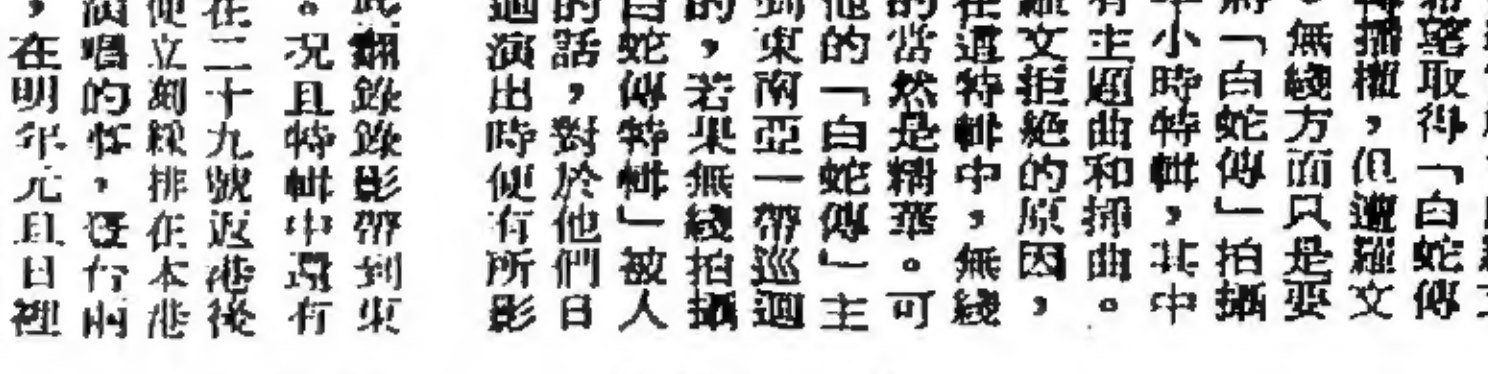 希望取得「白蛇傳
轉播權，但遭羅文
。無綫方面只是要
將「白蛇傳」拍攝
半小時特輯，其中
有主題曲和插曲。
羅文拒絕的原因，
在這特輯中，無綫
的當然是精華。可
他的「白蛇傳」主
到東南亞一帶巡迴
的，若果無綫拍攝
白蛇傳特輯」被人
的話，對於他們日
迴演出時便有所影
此翻錄錄影帶到東
。況且特輯中還有
在二十九號返港後
便立刻綵排在本港
演唱的事，有兩
，在明年元旦日裡